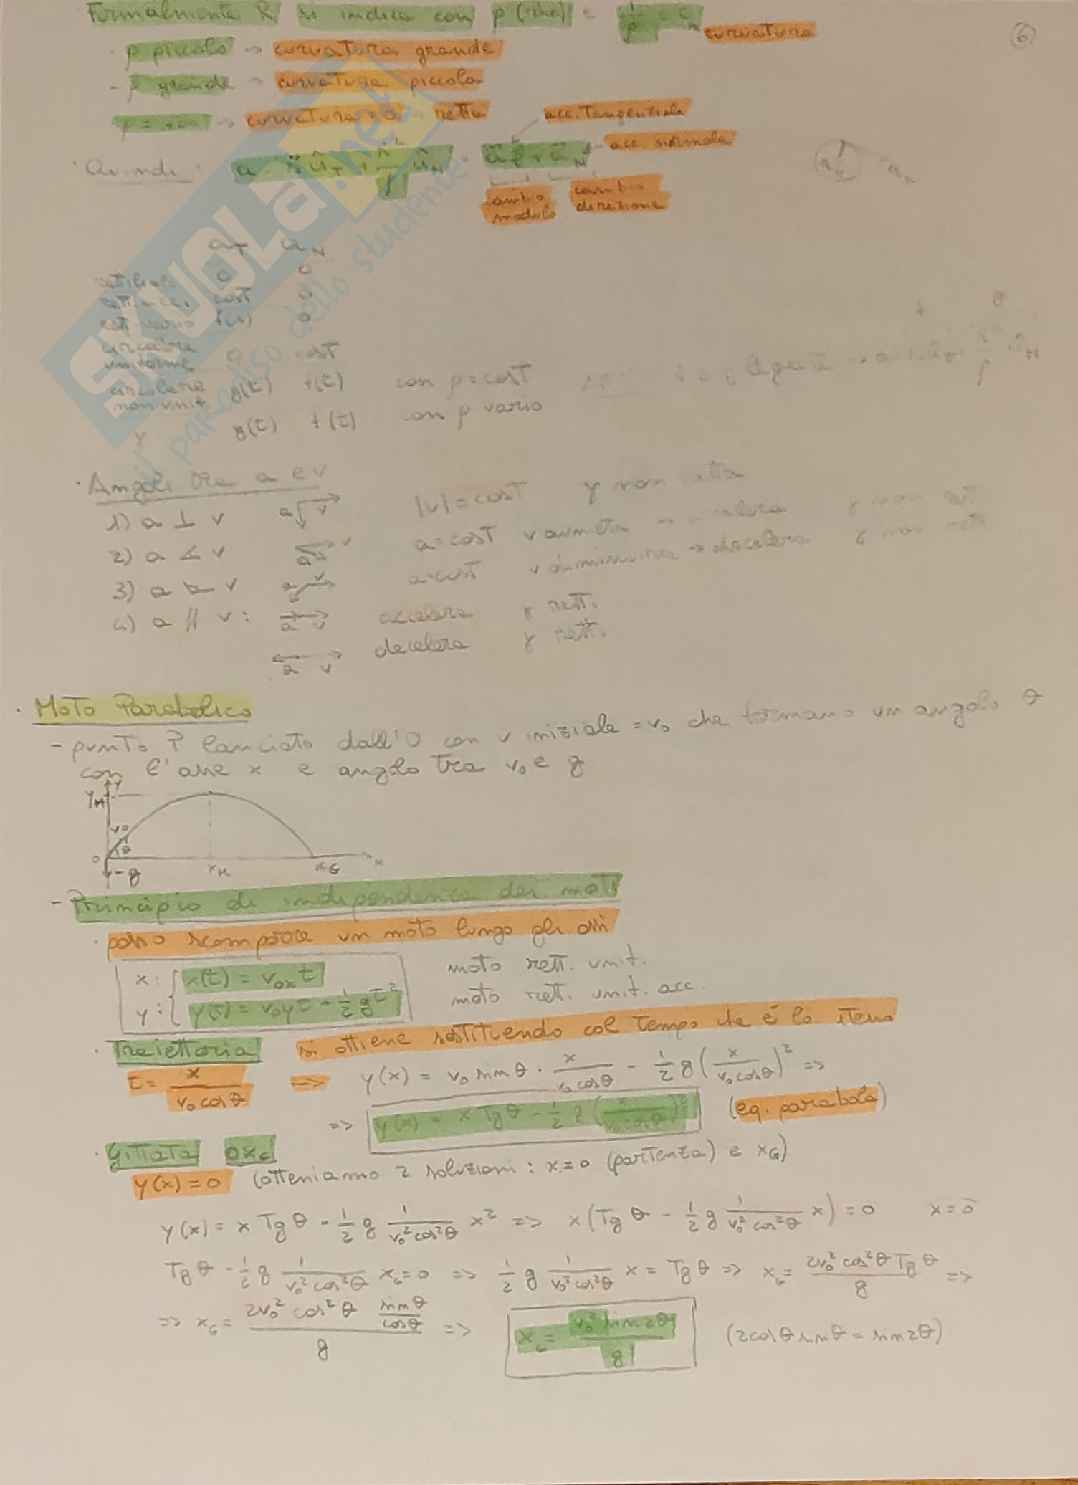 Formalmente R si indica con ρ (rho) = 1/ρ = c curvatura
6
· ρ piccolo → curvatura grande
- ρ grande → curvatura piccola
ρ = → curvatura retta
acc. tangenziale
acc. normale
· Quindi:
cambio modulo
cambio direzione
SKUOLA.net
il paradiso dello studente
a_T a_N
rettilineo 0 0
cost 0
0
circolare uniforme 0 cost
circolare non unif. g(t) f(t) con ρ = cost
γ g(t) f(t) con ρ vario
· Angoli tra a e v
1) a ⊥ v a v |v| = cost γ non retta
2) a ∠ v a v a = cost v aumenta → accelera γ non rett
3) a v a v a = cost v diminuisce → decelera γ non rett
4) a // v : a v accelera γ rett.
a v decelera γ rett.
· Moto Parabolico
- punto P lanciato dall'O con v iniziale = v₀ che formano un angolo θ
con l'asse x e angolo tra v₀ e g
y
y_M
v₀
θ
0
x_M x_G x
-g
- Principio di indipendenza dei moti
· posso scomporre un moto lungo gli assi
x: { x(t) = v₀ₓt moto rett. unif.
y: { y(t) = v₀yt - 1/2 gt² moto rett. unif. acc.
· Traiettoria si ottiene sostituendo col tempo che è lo stesso
t = x/(v₀ cosθ) => y(x) = v₀ sinθ · x/(v₀ cosθ) - 1/2 g (x/(v₀ cosθ))² =>
=> y(x) = x Tgθ - 1/2 g (x/(v₀ cosθ))² (eq. parabola)
· Gittata OX_G
y(x) = 0 (otteniamo 2 soluzioni: x=0 (partenza) e x_G)
y(x) = x Tgθ - 1/2 g 1/(v₀² cos²θ) x² => x(Tgθ - 1/2 g 1/(v₀² cos²θ) x) = 0 x=0
Tgθ - 1/2 g 1/(v₀² cos²θ) x_G = 0 => 1/2 g 1/(v₀² cos²θ) x = Tgθ => x_G = 2v₀² cos²θ Tgθ/g =>
=> x_G = 2v₀² cos²θ sinθ/cosθ / g => x_G = v₀² sin2θ/g (2cosθ sinθ = sin2θ)